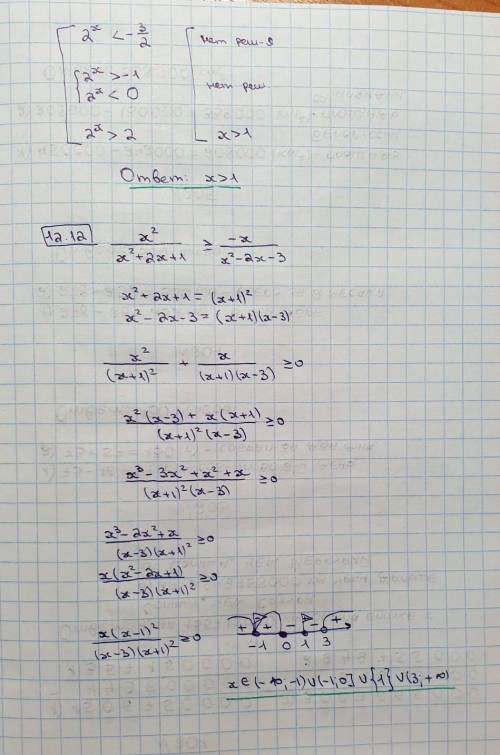 2^x < -3/2 нет реш-я
{ 2^x > -1
2^x < 0 нет реш.
2^x > 2 x>1
Ответ: x>1
12.12 x²/(x²+2x+1) ≥ -x/(x²-2x-3)
x²+2x+1 = (x+1)²
x²-2x-3 = (x+1)(x-3)
x²/(x+1)² + x/((x+1)(x-3)) ≥0
(x²(x-3) + x(x+1))/((x+1)²(x-3)) ≥0
(x³-3x²+x²+x)/((x+1)²(x-3)) ≥0
(x³-2x²+x)/((x-3)(x+1)²) ≥0
x(x²-2x+1)/((x-3)(x+1)²) ≥0
x(x-1)²/((x-3)(x+1)²) ≥0
+ + - - +
-1 0 1 3
x∈(-∞;-1)∪(-1;0]∪{1}∪(3;+∞)